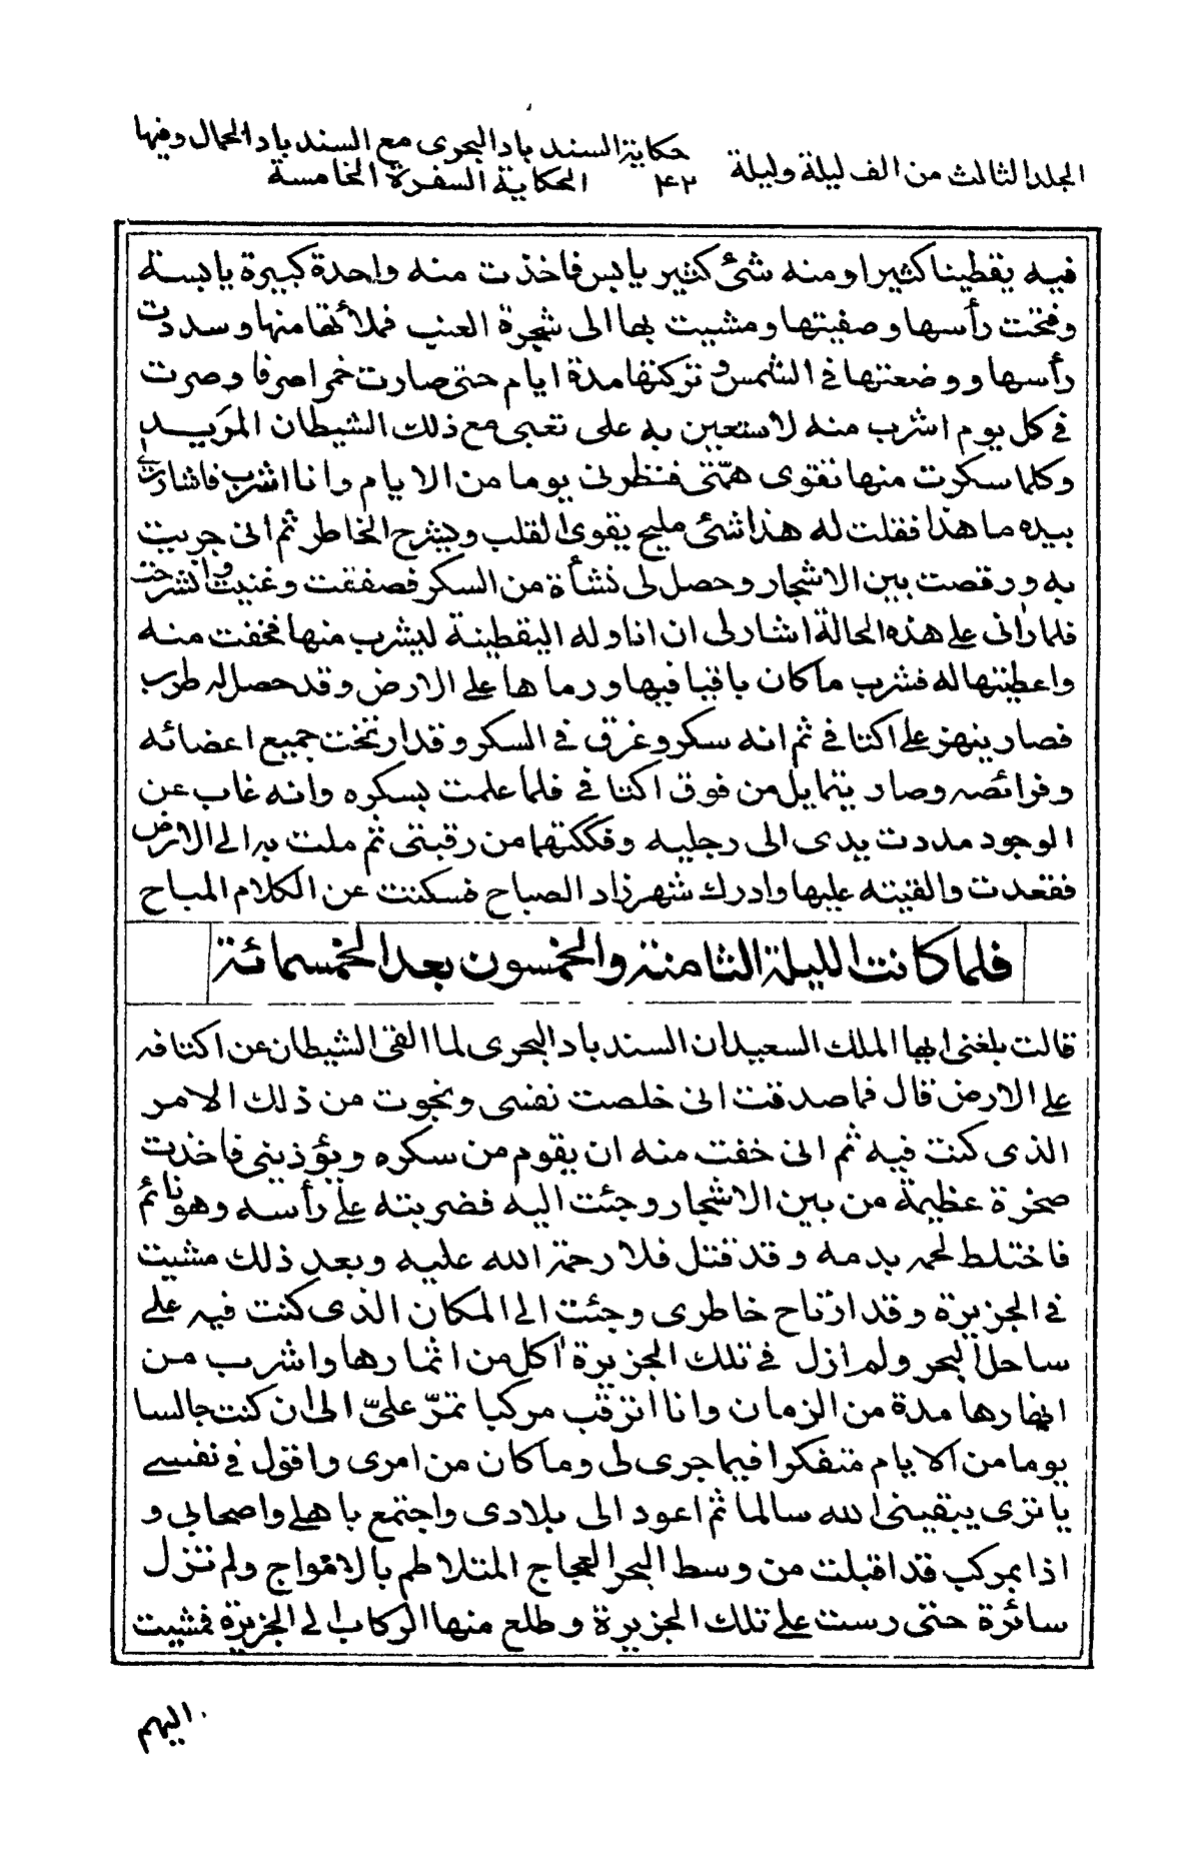 حكاية السندباد البحرى مع السندباد الحمال وفيها
المجلد الثالث من الف ليلة وليلة ٤٢ الحكاية السفرة الخامسة
فيه يقطينا كثيرا ومنه شئ كثير يابس فاخذت منه واحدة كبيرة يابسة
وفتحت رأسها وصفيتها ومشيت بها الى شجرة العنب فملأتها منها وسددت
رأسها ووضعتها فى الشمس وتركتها مدة ايام حتى صارت خمرا صرفا وصرت
فى كل يوم اشرب منه لاستعين به على تعبى مع ذلك الشيطان المريد
وكلما سكرت منها تقوى همّتى فنظرنى يوما من الايام وانا اشرب فاشار لى
بيده ما هذا فقلت له هذا شئ مليح يقوى القلب ويشرح الخاطر ثم انى جريت
به ورقصت بين الاشجار وحصل لى نشأة من السكر فصفقت وغنيت وانشرحت
فلما رانى على هذه الحالة اشار لى ان اناوله اليقطينة ليشرب منها فخفت منه
واعطيتها له فشرب ما كان باقيا فيها ورماها على الارض وقد حصل له طرب
فصار ينهز على اكتافى ثم انه سكر وغرق فى السكر وقد ارتخت جميع اعضائه
وفرائصه وصار يتمايل من فوق اكتافى فلما علمت بسكره وانه غاب عن
الوجود مددت يدى الى رجليه وفككتهما من رقبتى ثم ملت به الى الارض
فقعدت والقيته عليها وادرك شهرزاد الصباح فسكتت عن الكلام المباح
فلما كانت الليلة الثامنة والخمسون بعد الخمسمائة
قالت بلغنى ايها الملك السعيد ان السندباد البحرى لما القى الشيطان عن اكتافه
على الارض قال فما صدقت انى خلصت نفسى ونجوت من ذلك الامر
الذى كنت فيه ثم انى خفت منه ان يقوم من سكره ويؤذينى فاخذت
صخرة عظيمة من بين الاشجار وجئت اليه فضربته على رأسه وهو نائم
فاختلط لحمه بدمه وقد قتل فلا رحمة الله عليه وبعد ذلك مشيت
فى الجزيرة وقد ارتاح خاطرى وجئت الى المكان الذى كنت فيه على
ساحل البحر ولم ازل فى تلك الجزيرة اكل من اثمارها واشرب من
انهارها مدة من الزمان وانا اترقب مركبا تمرّ علىّ الى ان كنت جالسا
يوما من الايام متفكرا فيما جرى لى وما كان من امرى واقول فى نفسى
يا ترى يبقينى الله سالما ثم اعود الى بلادى واجتمع باهلى واصحابى و
اذا بمركب قد اقبلت من وسط البحر العجاج المتلاطم بالامواج ولم تزل
سائرة حتى رست على تلك الجزيرة وطلع منها الركاب الى الجزيرة فمشيت
اليهم